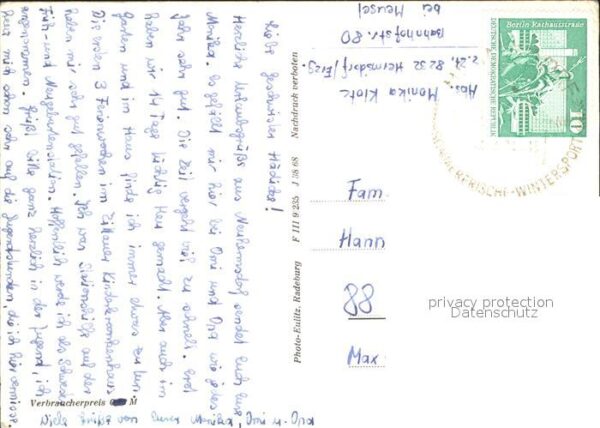 Liebe Geschwister Hädicke!
Herzliche Urlaubsgrüße aus Neuhermsdorf sendet Euch Eure
Monika. Es gefällt mir hier bei Omi und Opa wie jedes
Jahr sehr gut. Die Zeit vergeht viel zu schnell. Erst
haben wir 14 Tage Heu gemacht. Aber auch im
Garten und im Haus finde ich immer etwas zu tun.
Die ersten 3 Ferienwochen im Zittauer Kinderkrankenhaus
haben mir sehr gut gefallen. Ich war auf der
Früh und Neugeborenenstation. Hoffentlich werde ich als Schwester
angenommen. Grüßt bitte ganz herzlich in der Jugend, ich
freue mich schon sehr auf die Jugendstunden, die ich hier vermisse.
Viele Grüße von Eurer Monika, Omi u. Opa
Verbraucherpreis M
Photo-Eulitz, Radeburg F III 9 235 J 38 68 Nachdruck verboten
Abs. Monika Klotz
z. Zt. 8232 Hermsdorf/Erzg.
Bahnhofstr. 80
bei Meusel
Berlin Rathausstraße
DEUTSCHE DEMOKRATISCHE REPUBLIK
10
WINTERSPORT
Fam
Hann
88
Max
privacy protection
Datenschutz